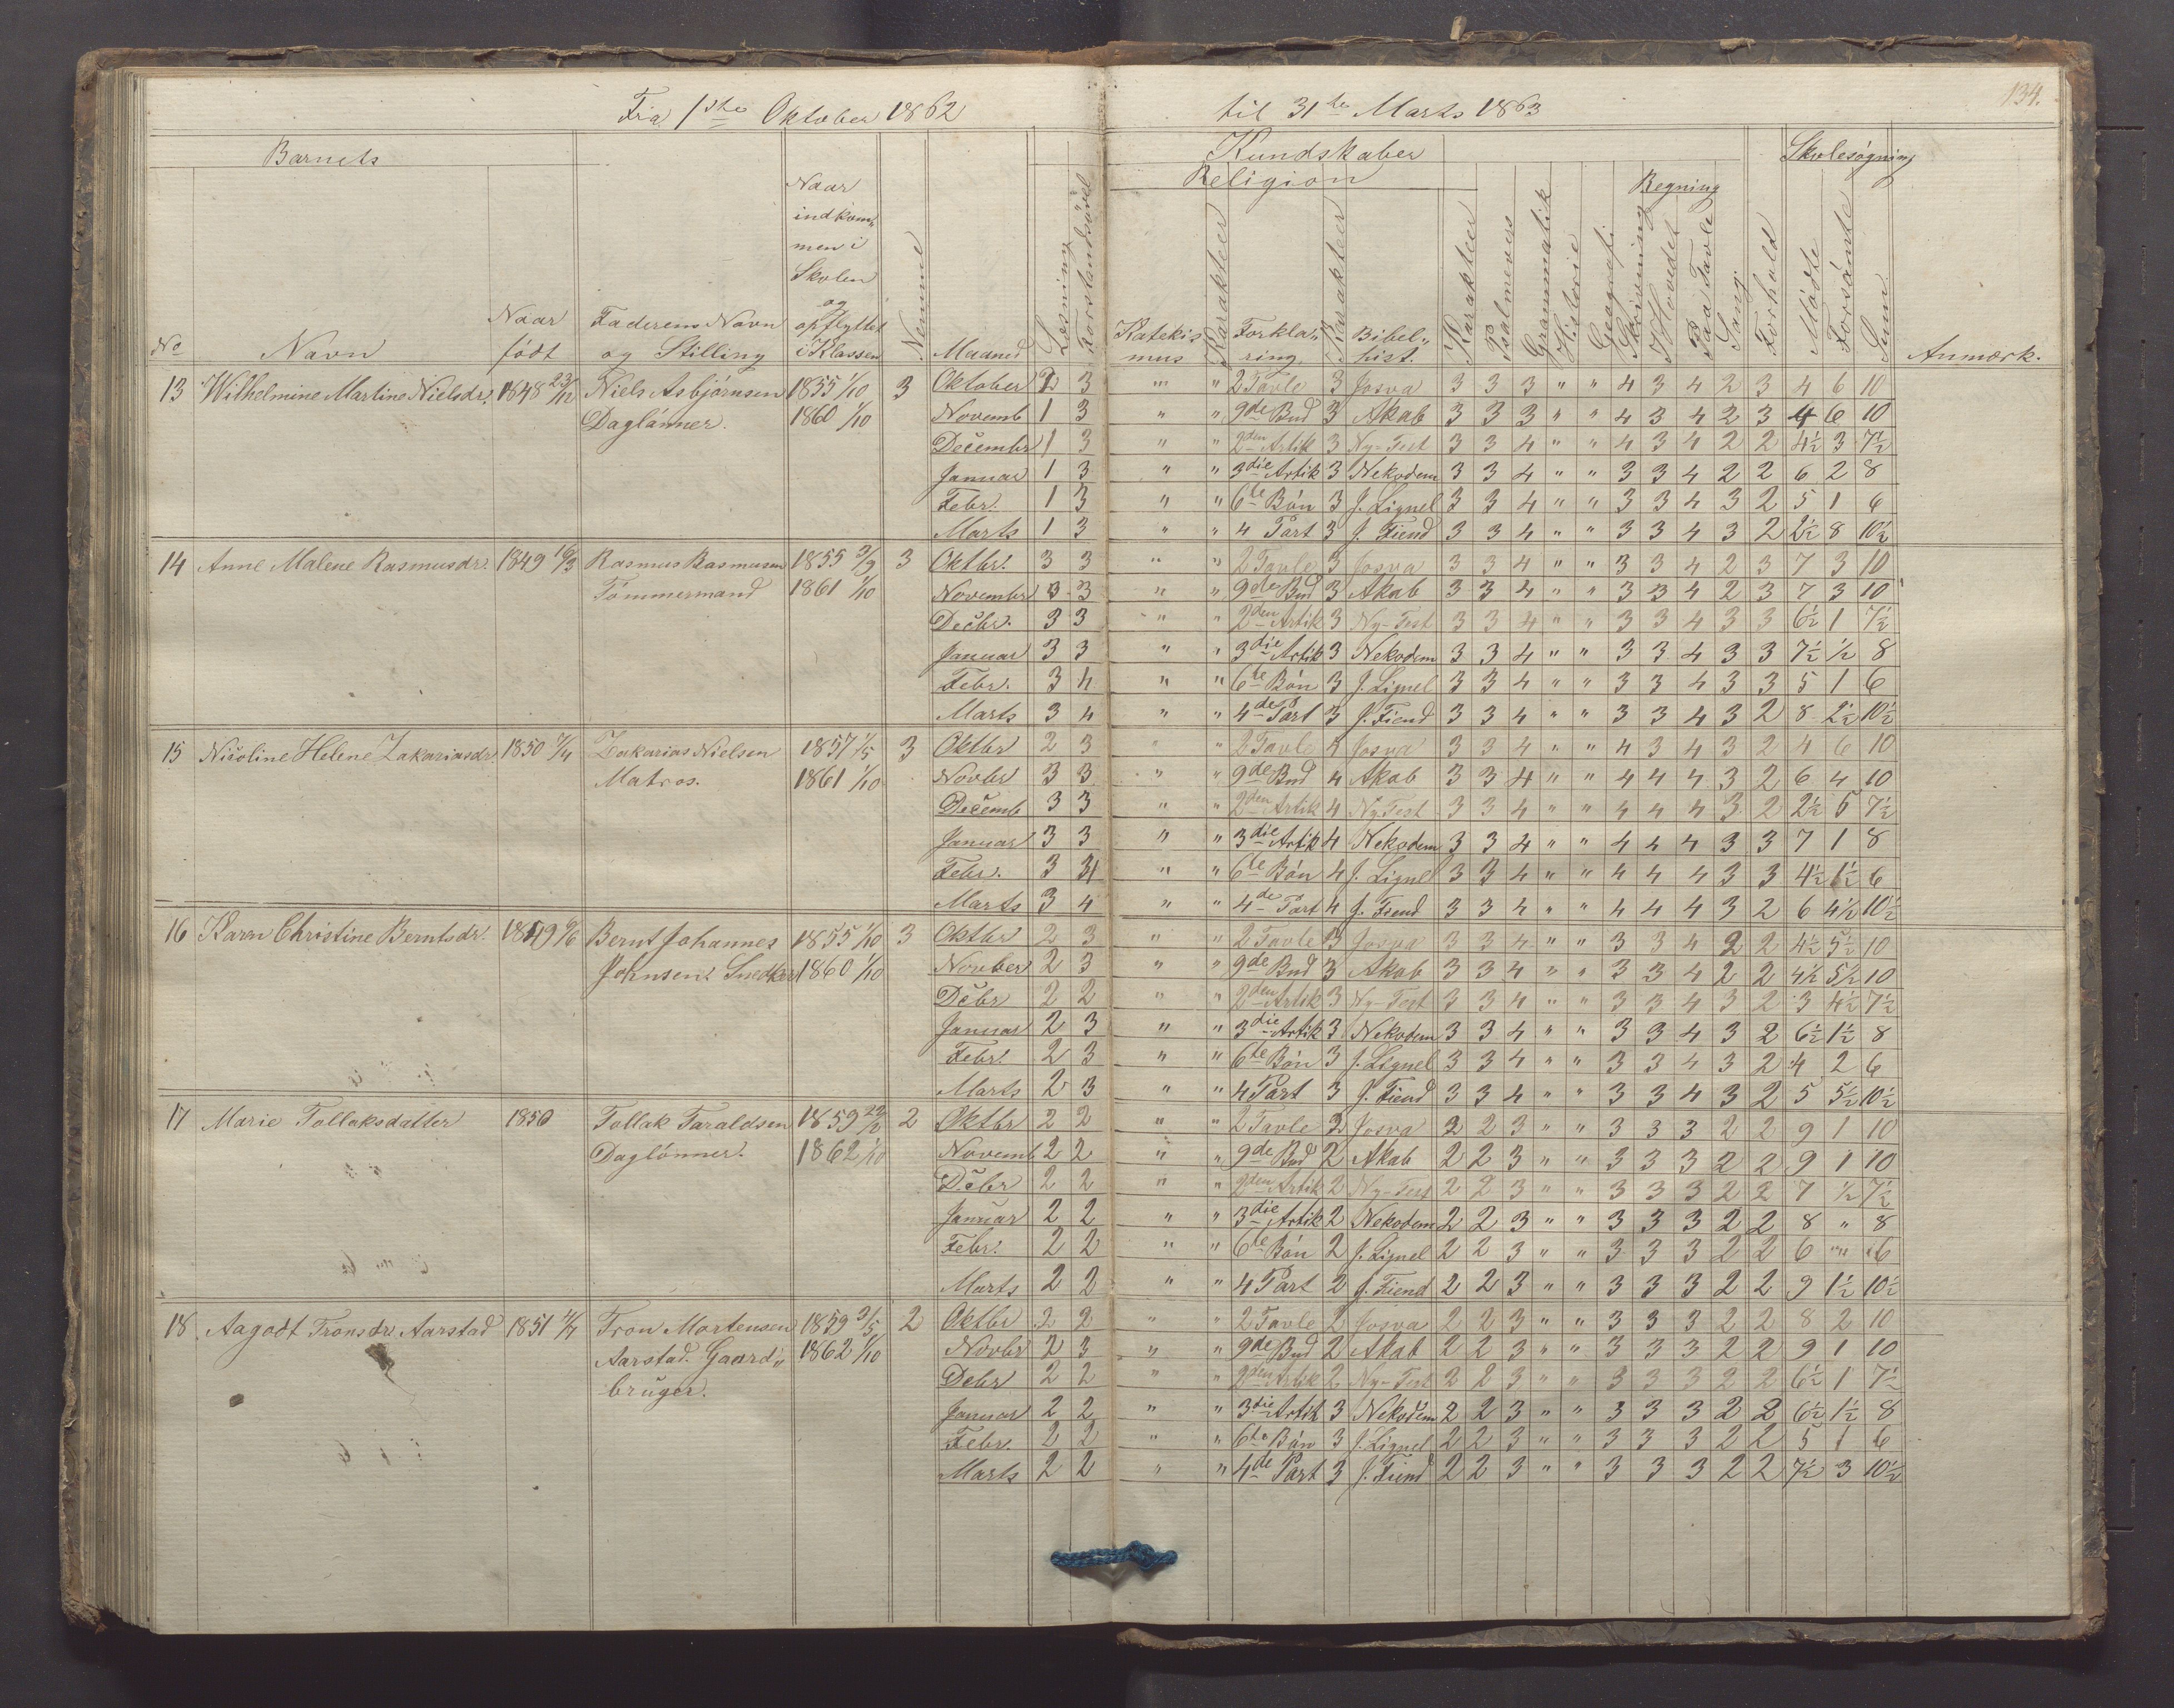 134.
Fra 1ste Oktober 1862 til 31te Marts 1863
Barnets Kundskaber Skolesøgning
Religion Regning
No Navn Naar født Faderens Navn og Stilling Naar indkom„men i Skolen og opflyttet i Klassen Nemme Maaned Læsning Forstandsøvel Katekismus Karakteer Forkla„ring Karakteer Bibel„hist. Karakteer Psalmevers Grammatik Historie Geografi Skrivening I Hovedet Paa Tavle Sang Forhold Mødte Forsömte Sum Anmærk.
13 Wilhelmine Martine Nielsdr. 1848 23/12 Niels Asbjörnsen 1855 1/10 3 Oktober 2 3 " " 2 Tavle 3 Josva 3 3 3 " " 4 3 4 2 3 4 6 10
Daglönner. 1860 1/10 Novemb 1 3 " " 9de Bud 3 Akab 3 3 3 " " 4 3 4 2 3 4 6 10
Decembr 1 3 " " 2den Artik 3 Ny-Test 3 3 4 " " 4 3 4 2 2 4½ 3 7½
Januar 1 3 " " 3die Artik 3 Nekodem 3 3 4 " " 3 3 4 2 2 6 2 8
Febr. 1 3 " " 6te Bön 3 J. Lignel 3 3 4 " " 3 3 4 3 2 5 1 6
Marts 1 3 " " 4 Part 3 J. Fiend 3 3 4 " " 3 3 4 3 2 2½ 8 10½
14 Anne Malene Rasmusdr. 1849 16/3 Rasmus Rasmusen 1855 3/9 3 Oktbr. 3 3 " " 2 Tavle 3 Josva 3 3 4 " " 3 3 4 2 3 7 3 10
Tömmermand 1861 1/10 Novembr 3 3 " " 9de Bud 3 Akab 3 3 4 " " 3 3 4 2 3 7 3 10
Decbr. 3 3 " " 2den Artik 3 Ny-Test 3 3 4 " " 3 3 4 3 3 6½ 1 7½
Januar 3 3 " " 3die Artik 3 Nekodem 3 3 4 " " 3 3 4 3 3 7½ ½ 8
Febr. 3 4 " " 6te Bön 3 J. Lignel 3 3 4 " " 3 3 4 3 3 5 1 6
Marts 3 4 " " 4de Part 3 J. Fiend 3 3 4 " " 3 3 4 3 2 8 2½ 10½
15 Nicoline Helene Zakariasdr. 1850 Zakarias Nielsen 1857 1/5 3 Oktbr 2 3 " " 2 Tavle 4 Josva 3 3 4 " " 4 3 4 3 2 4 6 10
Matros. 1861 1/10 Novbr 3 3 " " 9de Bud 4 Akab 3 3 4 " " 4 4 4 3 2 6 4 10
Decemb 3 3 " " 2den Artik 4 Ny Test 3 3 4 " " 4 4 4 3 2 2½ 5 7½
Januar 3 3 " " 3die Artik 4 Nekodem 3 3 4 " " 4 4 4 3 3 7 1 8
Febr. 3 " " 6te Bön 4 J. Lignel 3 3 4 " " 4 4 4 3 3 4½ 1½ 6
Marts 3 4 " " 4de Part 4 J. Fiend 3 3 4 " " 4 4 4 3 2 6 4½ 10½
16 Karen Christine Berntsdr. 1849 6/6 Bernt Johannes 1855 1/10 3 Oktbr 2 3 " " 2 Tavle 3 Josva 3 3 4 " " 3 3 4 2 2 4½ 5½ 10
Johnsen. Snedker 1860 1/10 Novber 2 3 " " 9de Bud 3 Akab 3 3 4 " " 3 3 4 2 2 4½ 5½ 10
Decbr 2 2 " " 2den Artik 3 Ny-Test 3 3 4 " " 3 3 4 3 2 3 4½ 7½
Januar 2 3 " " 3die Artik 3 Nekodem 3 3 4 " " 3 3 4 3 2 6½ 1½ 8
Febr. 2 3 " " 6te Bön 3 J. Lignel 3 3 4 " " 3 3 4 3 2 4 2 6
Marts 2 3 " " 4 Part 3 J. Fiend 3 3 4 " " 3 3 4 3 2 5 5½ 10½
17 Marie Tollaksdatter 1850 Tollak Taraldsen 1859 2 Oktbr 2 2 " " 2 Tavle 2 Josva 2 2 3 " " 3 3 3 2 2 9 1 10
Daglönner. 1862 1/10 Novemb 2 2 " " 9de Bud 2 Akab 2 2 3 " " 3 3 3 2 2 9 1 10
Decbr 2 2 " " 2den Artik 2 Ny-Test 2 2 3 " " 3 3 3 2 2 7 ½ 7½
Januar 2 2 " " 3die Artik 2 Nekodem 2 2 3 " " 3 3 3 2 2 8 " 8
Febr. 2 2 " " 6te Bön 2 J. Lignel 2 2 3 " " 3 3 3 2 2 6 " 6
Marts 2 2 " " 4 Part 2 J. Fiend 2 2 3 " " 3 3 3 2 2 9 1½ 10½
18 Aagodt Tronsdr. Aarstad 1851 Tron Mortensen 1859 3/5 2 Oktbr 2 2 " " 2 Tavle 2 Josva 2 2 3 " " 3 3 3 2 2 8 2 10
Aarstad. Gaard„ 1862 1/10 Novbr 2 3 " " 9de Bud 2 Akab 2 2 3 " " 3 3 3 2 2 9 1 10
bruger. Decbr 2 2 " " 2den Artik 2 Ny-Test 2 2 3 " " 3 3 3 2 2 6½ 1 7½
Januar 2 2 " " 3die Artik 3 Nekodem 2 2 3 " " 3 3 3 2 2 6½ 1½ 8
Febr. 2 2 " " 6te Bön 3 J. Lignel 2 2 3 " " 3 3 3 2 2 5 1 6
Marts 2 2 " " 4de Part 3 J. Fiend 2 2 3 " " 3 3 3 2 2 7½ 3 10½